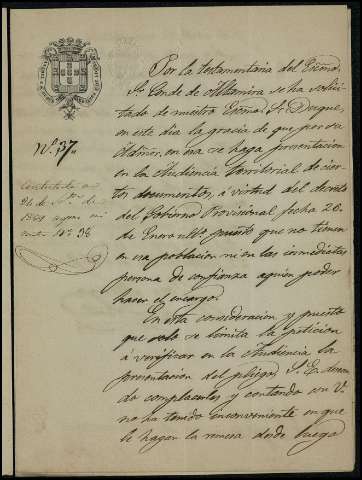 Nº 37„
Contestada en
1869
Nº 38
Por la testamentaria del Excmo.
Sr. Conde de Altamira se ha solici-
tado de nuestro Excmo. Sr. Duque,
en este dia la gracia de que por su
en esa se haga presentacion
en la Audiencia territorial de cier-
tos documentos, á virtud del decreto
del Gobierno Provisional fecha 20
de Enero puesto que no tienen
en esa poblacion ni en las inmediatas
persona de confianza á quien poder
hacer el encargo.
En esta consideracion y puesto
que solo se limita la peticion
á verificar en la Audiencia la
presentacion del pliego, S. E. desean-
do complacerles y contando con V.
no ha tenido inconveniente en que
le hagan la remesa desde luego